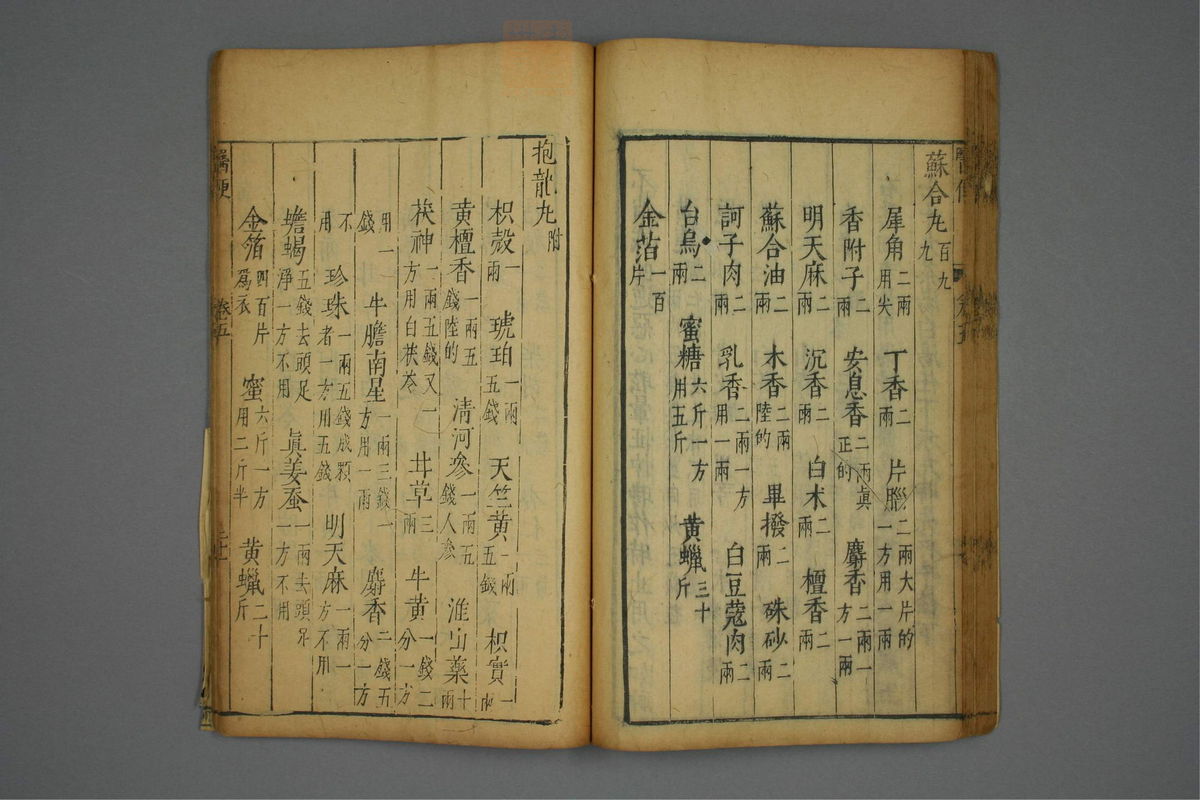 蘇合丸 百九九
犀角 二兩用尖 丁香 二兩 片腦 二兩大片的一方用一兩
香附子 二兩 安息香 二兩真正的 麝香 二兩一方一兩
明天麻 二兩 沉香 二兩 白朮 二兩 檀香 二兩
蘇合油 二兩 木香 二兩陸的 畢撥 二兩 硃砂 二兩
訶子肉 二兩 乳香 二兩一方用一兩 白豆蔻肉 二兩
台烏 二兩 蜜糖 六斤一方用五斤 黄蠟 三十斤
金箔 一百片
抱龍丸 附
枳殼 一兩 琥珀 一兩五錢 天竺黄 一兩五錢 枳實 一兩
黄檀香 一兩五錢陸的 清河參 一兩五錢人參 淮山藥 十兩
茯神 一兩五錢又一方用白茯苓 甘草 三兩 牛黄 一錢二分一方
用一錢 牛膽南星 一兩三錢一方用一兩 麝香 二錢五分一方
不用 珍珠 一兩五錢成顆者一方用五錢 明天麻 一兩一方不用
蟾蝎 五錢去頭足淨一方不用 真姜蚕 一兩去頭足一方不用
金箔 四百片爲衣 蜜 六斤一方用二斤半 黄蠟 二十斤
卷五